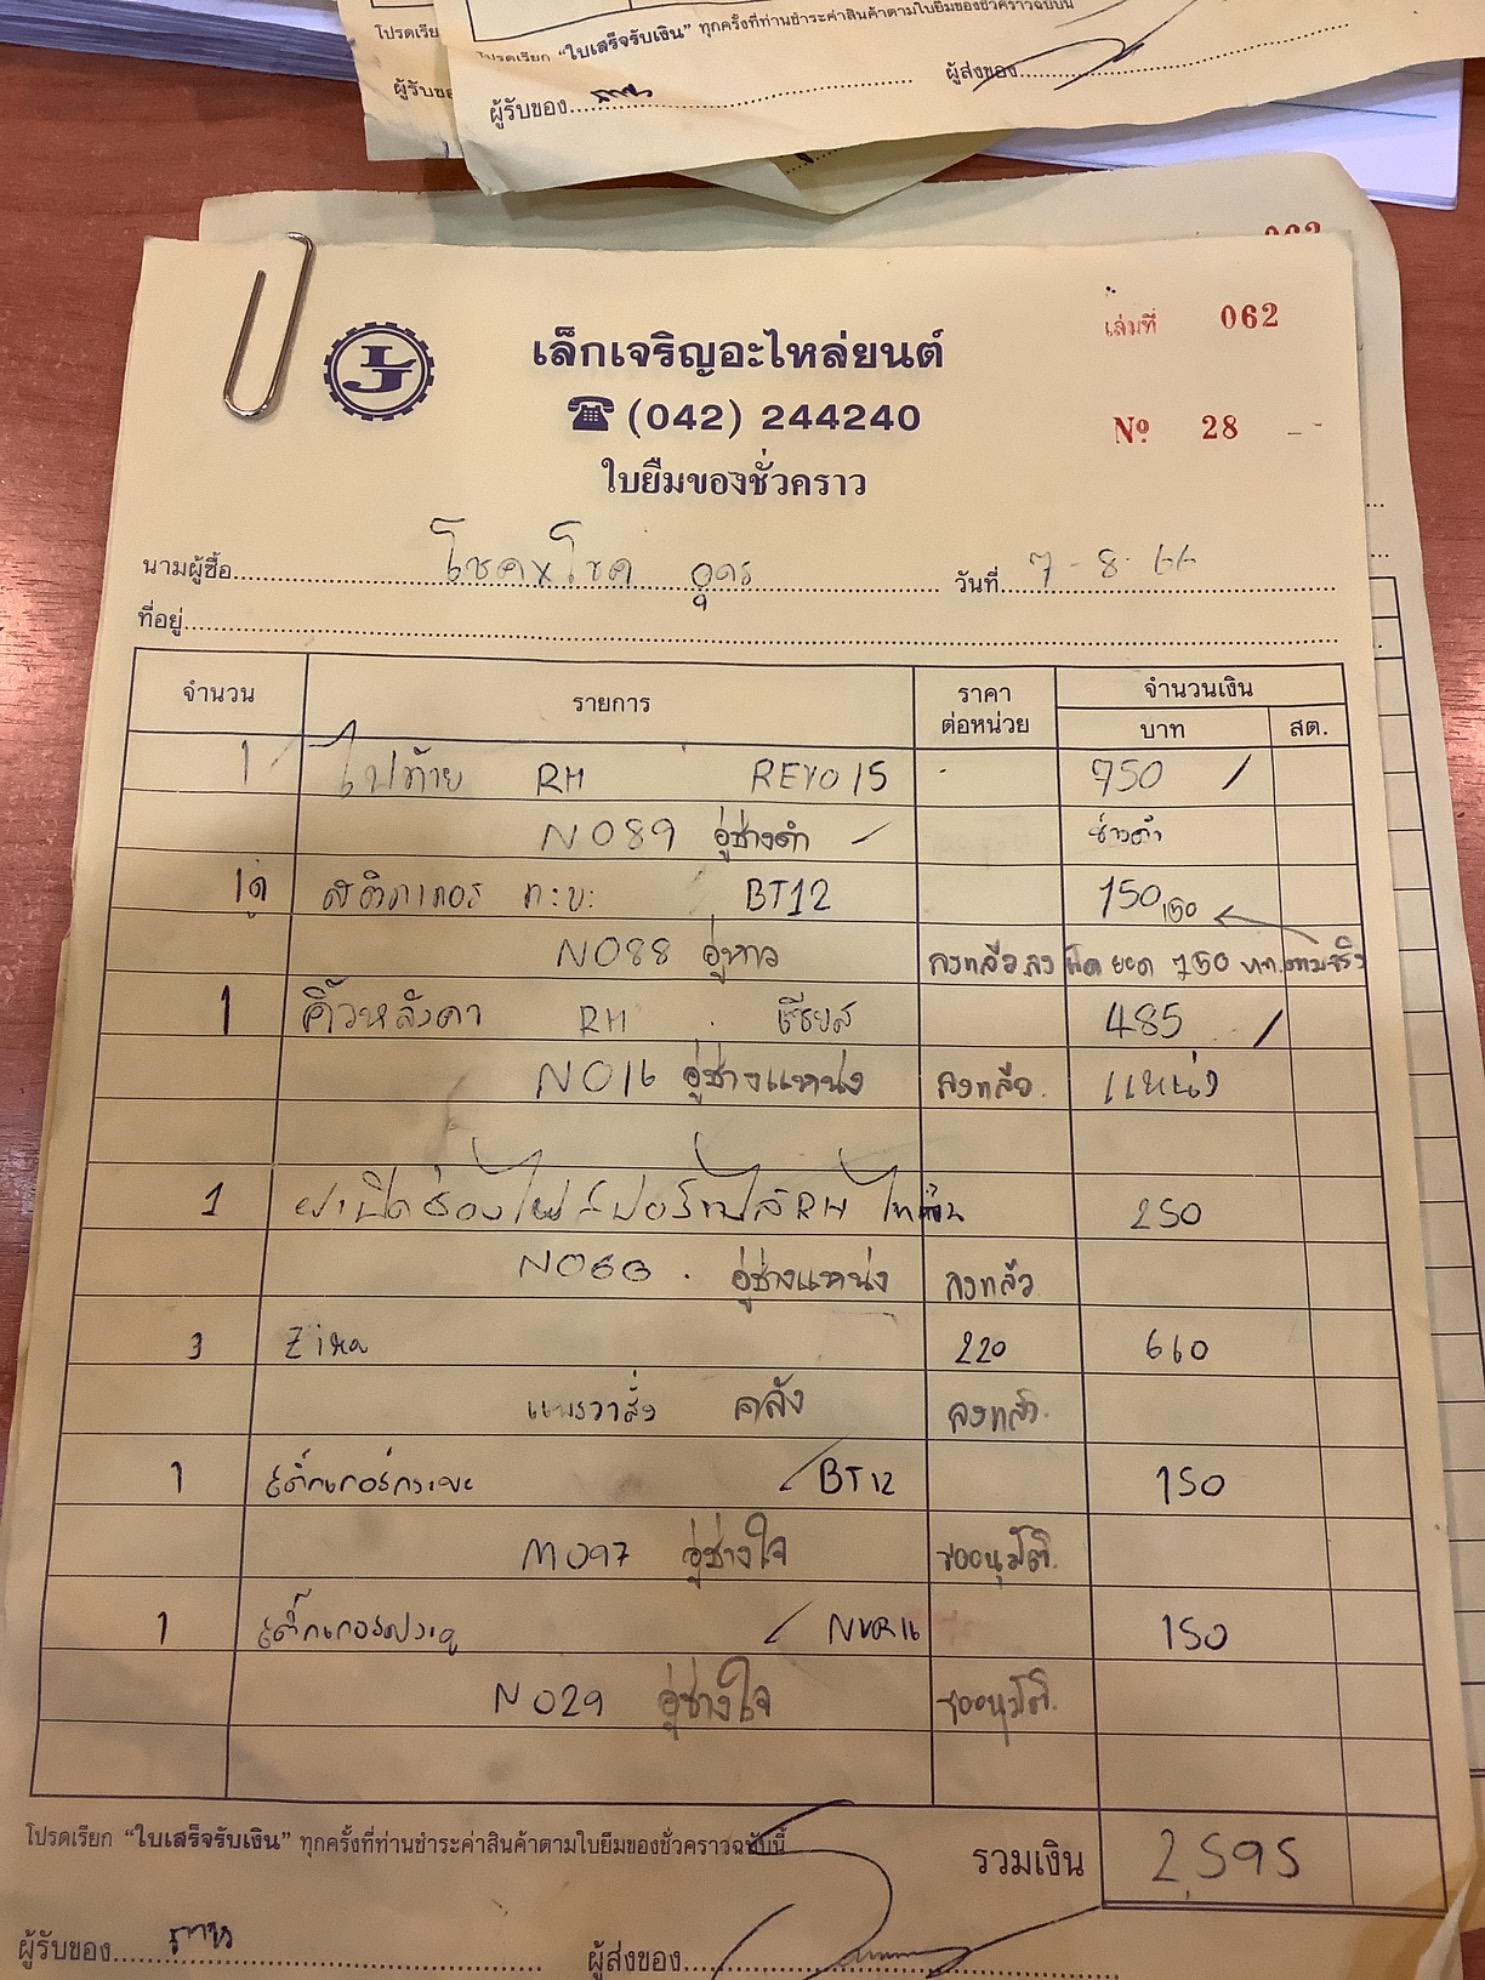 โปรดเรีย
โปรดเรียก “ใบเสร็จรับเงิน” ทุกครั้งที่ท่านชำระค่าสินค้าตามใบยืมของชั่วคราวฉบับนี้
ผู้รับขอ
ผู้รับของ ผู้ส่งของ
เล็กเจริญอะไหล่ยนต์
เล่มที่ 062
(042) 244240
Nº 28
ใบยืมของชั่วคราว
นามผู้ซื้อ โชคxโชค อุดร วันที่ 7-8-66
ที่อยู่
จำนวน รายการ ราคาต่อหน่วย จำนวนเงิน
บาท สต.
1 ไฟท้าย RH REVO 15 750
N089 อู่ช่างดำ ช่างดำ
1 สติกเกอร์ กะบะ BT12 150 150
N088 อู่หาว ลงแล้ว ลงผิด ยอด 750 บาท ตามจริง
1 คิ้วหลังคา RH เชียส 485
N016 อู่ช่างแหน่ง ลงแล้ว แหน่ง
1 ฝาปิดช่องไฟสปอร์ทไลท์ RH 250
N060 อู่ช่างแหน่ง ลงแล้ว
3 220 660
แพรวาสั่ง คลัง ลงแล้ว
1 สติ๊กเกอร์กระบะ BT12 150
M097 อู่ช่างใจ ขออนุมัติ
1 สติ๊กเกอร์ประตู NVR16 150
N029 อู่ช่างใจ ขออนุมัติ
โปรดเรียก “ใบเสร็จรับเงิน” ทุกครั้งที่ท่านชำระค่าสินค้าตามใบยืมของชั่วคราวฉบับนี้
รวมเงิน 2,595
ผู้รับของ ผู้ส่งของ